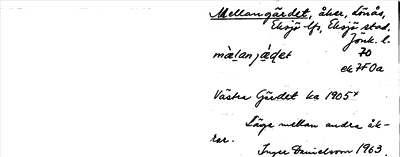 Mellangärdet, åker, Lönås,
Eksjö lfs, Eksjö stad,
Jönk. l.
màḷanjǻḍet 70
ek 7F0a
Västra Gärdet ka 1905ˣ
Läge mellan andra åk-
rar.
Inger Danielsson 1963.